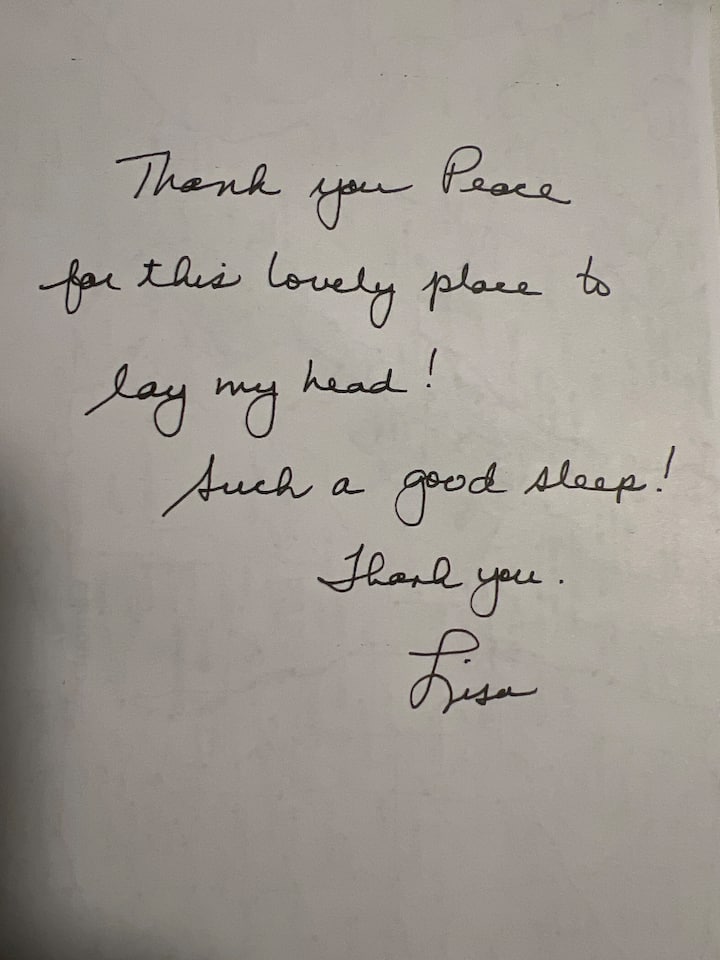 Thank you Peace
for this lovely place to
lay my head!
Such a good sleep!
Thank you.
Lisa